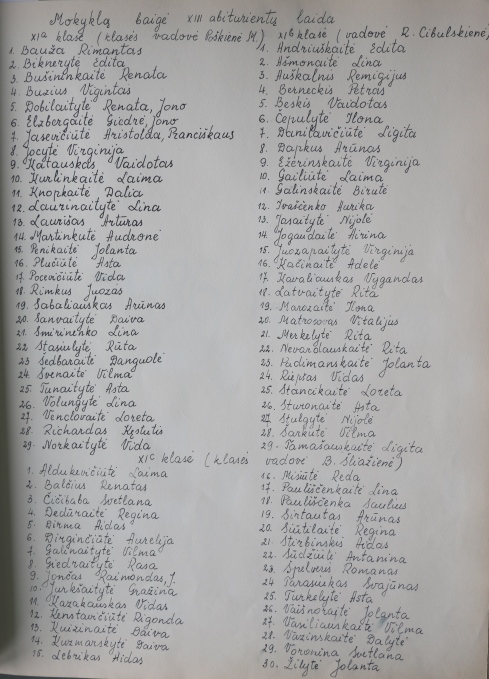 Mokyklą baigė XIII abiturientų laida
XIa klasė (klasės vadovė M.)
1. Bauža Rimantas
2. Biknerytė Edita
3. Bušininkaitė Renata
4. Buzius Vigintas
5. Dobilaitytė Renata, Jono
6. Elzbergaitė Giedrė, Jono
7. Jasevičiūtė Aristolda, Pranciškaus
8. Jocytė Virginija
9. Katauskas Vaidotas
10. Kurlinkaitė Laima
11. Knopkaitė Dalia
12. Laurinaitytė Lina
13. Laurišas Artūras
14. Martinkutė Audronė
15. Penikaitė Jolanta
16. Plučiūtė Asta
17. Pocevičiūtė Vida
18. Rimkus Juozas
19. Sabaliauskas Arūnas
20. Sanvaitytė Daiva
21. Smirinenko Lina
22. Stasiulytė Rūta
23. Sedbaraitė Danguolė
24. Švenaitė Vilma
25. Tunaitytė Asta
26. Volungytė Lina
27. Venclovaitė Loreta
28. Richardas Kęstutis
29. Norkaitytė Vida
XIb klasė (vadovė R. Cibulskienė)
1. Andriuškaitė Edita
2. Ašmonaitė Lina
3. Auškalnis Remigijus
4. Berneckis Petras
5. Beskis Vaidotas
6. Čepulytė Ilona
7. Danilavičiūtė Ligita
8. Dapkus Arūnas
9. Ežerinskaitė Virginija
10. Gailiūtė Laima
11. Galinskaitė Birutė
12. Ivaščenko Aurika
13. Jasaitytė Nijolė
14. Jogaudaitė Airina
15. Juozapaitytė Virginija
16. Kalinaitė Adelė
17. Kavaliauskas Vygandas
18. Latvaitytė Rita
19. Marozaitė Ilona
20. Matrosovas Vitalijus
21. Merkelytė Rita
22. Nevardauskaitė Rita
23. Jolanta
24. Riepšas Vidas
25. Stancikaitė Loreta
26. Sturonaitė Asta
27. Stulgytė Nijolė
28. Šarkutė Vilma
29. Tamašauskaitė Ligita
XIc klasė (klasės vadovė B. Sliažienė)
1. Aldukevičiūtė Laima
2. Balčius Renatas
3. Čičibaba Svetlana
4. Dedūraitė Regina
5. Dirma Aidas
6. Dirginčiūtė Aurelija
7. Galinaitytė Vilma
8. Giedraitytė Rasa
9. Jončas Raimondas, J.
10. Jurkšaitytė Gražina
11. Kazakauskas Vidas
12. Kenstavičiūtė Rigonda
13. Kuizinaitė Daiva
14. Kuzmarskytė Daiva
15. Lebrikas Aidas
16. Misiūtė Reda
17. Pauliščenkaitė Lina
18. Pauliščenka Saulius
19. Sirtautas Arūnas
20. Siūtilaitė Regina
21. Stirbinskis Aidas
22. Sūdžiūtė Antanina
23. Spelveris Romanas
24. Parasiukas Svajūnas
25. Turkelytė Asta
26. Vaišnoraitė Jolanta
27. Vasiliauskaitė Vilma
28. Važinskaitė Dalytė
29. Voronina Svetlana
30. Žilytė Jolanta